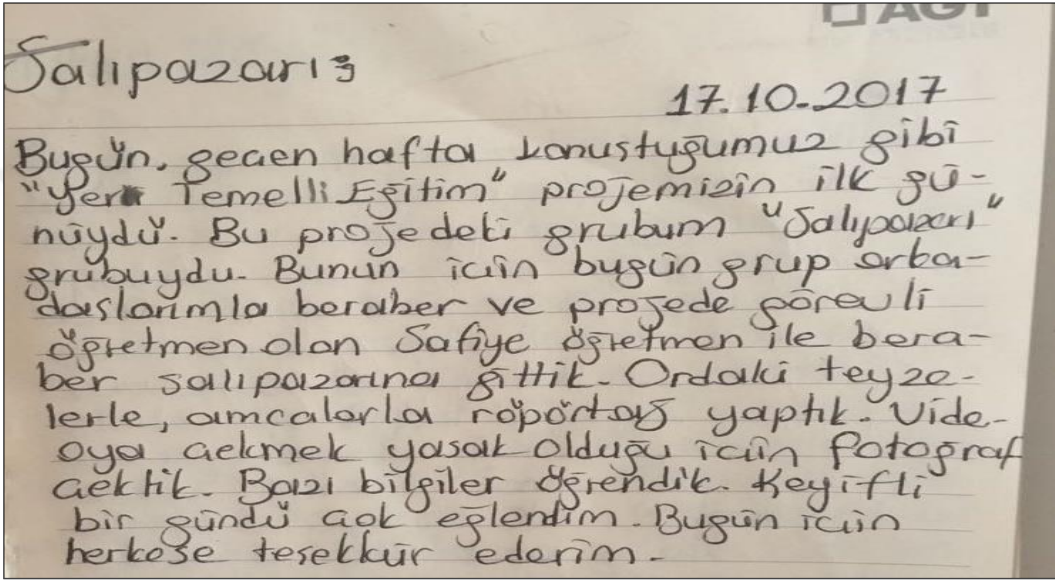 AGT
Salıpazarı
17.10.2017
Bugün, geçen hafta konuştuğumuz gibi
"Yer Temelli Eğitim" projemizin ilk gü-
nüydü. Bu projedeki grubum "Salıpazarı"
grubuydu. Bunun için bugün grup arka-
daşlarımla beraber ve projede görevli
öğretmen olan Safiye öğretmen ile bera-
ber salıpazarına gittik. Ordaki teyze-
lerle, amcalarla röpörtaj yaptık. Vide-
oya çekmek yasak olduğu için fotoğraf
çektik. Bazı bilgiler öğrendik. Keyifli
bir gündü çok eğlendim. Bugün için
herkese teşekkür ederim.